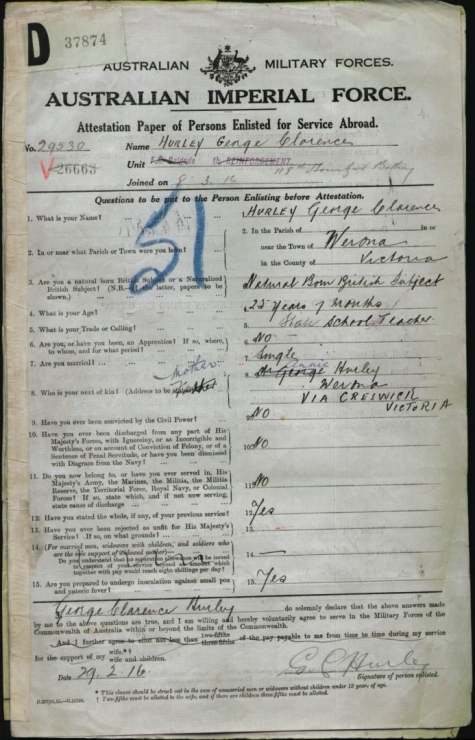 D 37874
AUSTRALIAN MILITARY FORCES.
AUSTRALIAN IMPERIAL FORCE.
Attestation Paper of Persons Enlisted for Service Abroad.
No. 29530 Name HURLEY George Clarence
V 26663 Unit REINFORCEMENT
Joined on 8-3-16
Questions to be put to the Person Enlisting before Attestation.
51
1. What is your Name? HURLEY George Clarence
2. In or near what Parish or Town were you born? 2. In the Parish of in or
near the Town of Werona
in the County of Victoria
3. Are you a natural born British Subject or a Naturalized
British Subject? (N.B. latter, papers to be
shown.) Natural Born British Subject
4. What is your Age? 25 Years 9 Months
5. What is your Trade or Calling? 5. State School Teacher
6. Are you, or have you been, an Apprentice? If so, where,
to whom, and for what period? 6. No
7. Are you married? 7. Single
mother
8. Who is your next of kin? (Address to be stated) 8. George Hurley
Werona
VIA CRESWICK
VICTORIA
9. Have you ever been convicted by the Civil Power? 9. No
10. Have you ever been discharged from any part of His
Majesty's Forces, with Ignominy, or as Incorrigible and
Worthless, or on account of Conviction of Felony, or of a
Sentence of Penal Servitude, or have you been dismissed
with Disgrace from the Navy? 10. No
11. Do you now belong to, or have you ever served in, His
Majesty's Army, the Marines, the Militia, the Militia
Reserve, the Territorial Force, Royal Navy, or Colonial
Forces? If so, state which, and if not now serving,
state cause of discharge 11. No
12. Have you stated the whole, if any, of your previous service? 12. Yes
13. Have you ever been rejected as unfit for His Majesty's
Service? If so, on what grounds? 13. No
14. (For married men, widowers with children, and soldiers who
are the sole support of widowed mother)—
Do you understand that no separation allowance will be issued
in respect of your service beyond an amount which
together with pay would reach eight shillings per day? 14. —
15. Are you prepared to undergo inoculation against small pox
and enteric fever? 15. Yes
I, George Clarence Hurley do solemnly declare that the above answers made
by me to the above questions are true, and I am willing and hereby voluntarily agree to serve in the Military Forces of the
Commonwealth of Australia within or beyond the limits of the Commonwealth.
And I further agree to allot not less than two-fifths of the pay payable to me from time to time during my service
for the support of my wife.*†
wife and children.
Date 29.2.16. G C Hurley
Signature of person enlisted.
* This clause should be struck out in the case of unmarried men or widowers without children under 18 years of age.
† Two-fifths must be allotted to the wife, and if there are children three-fifths must be allotted.